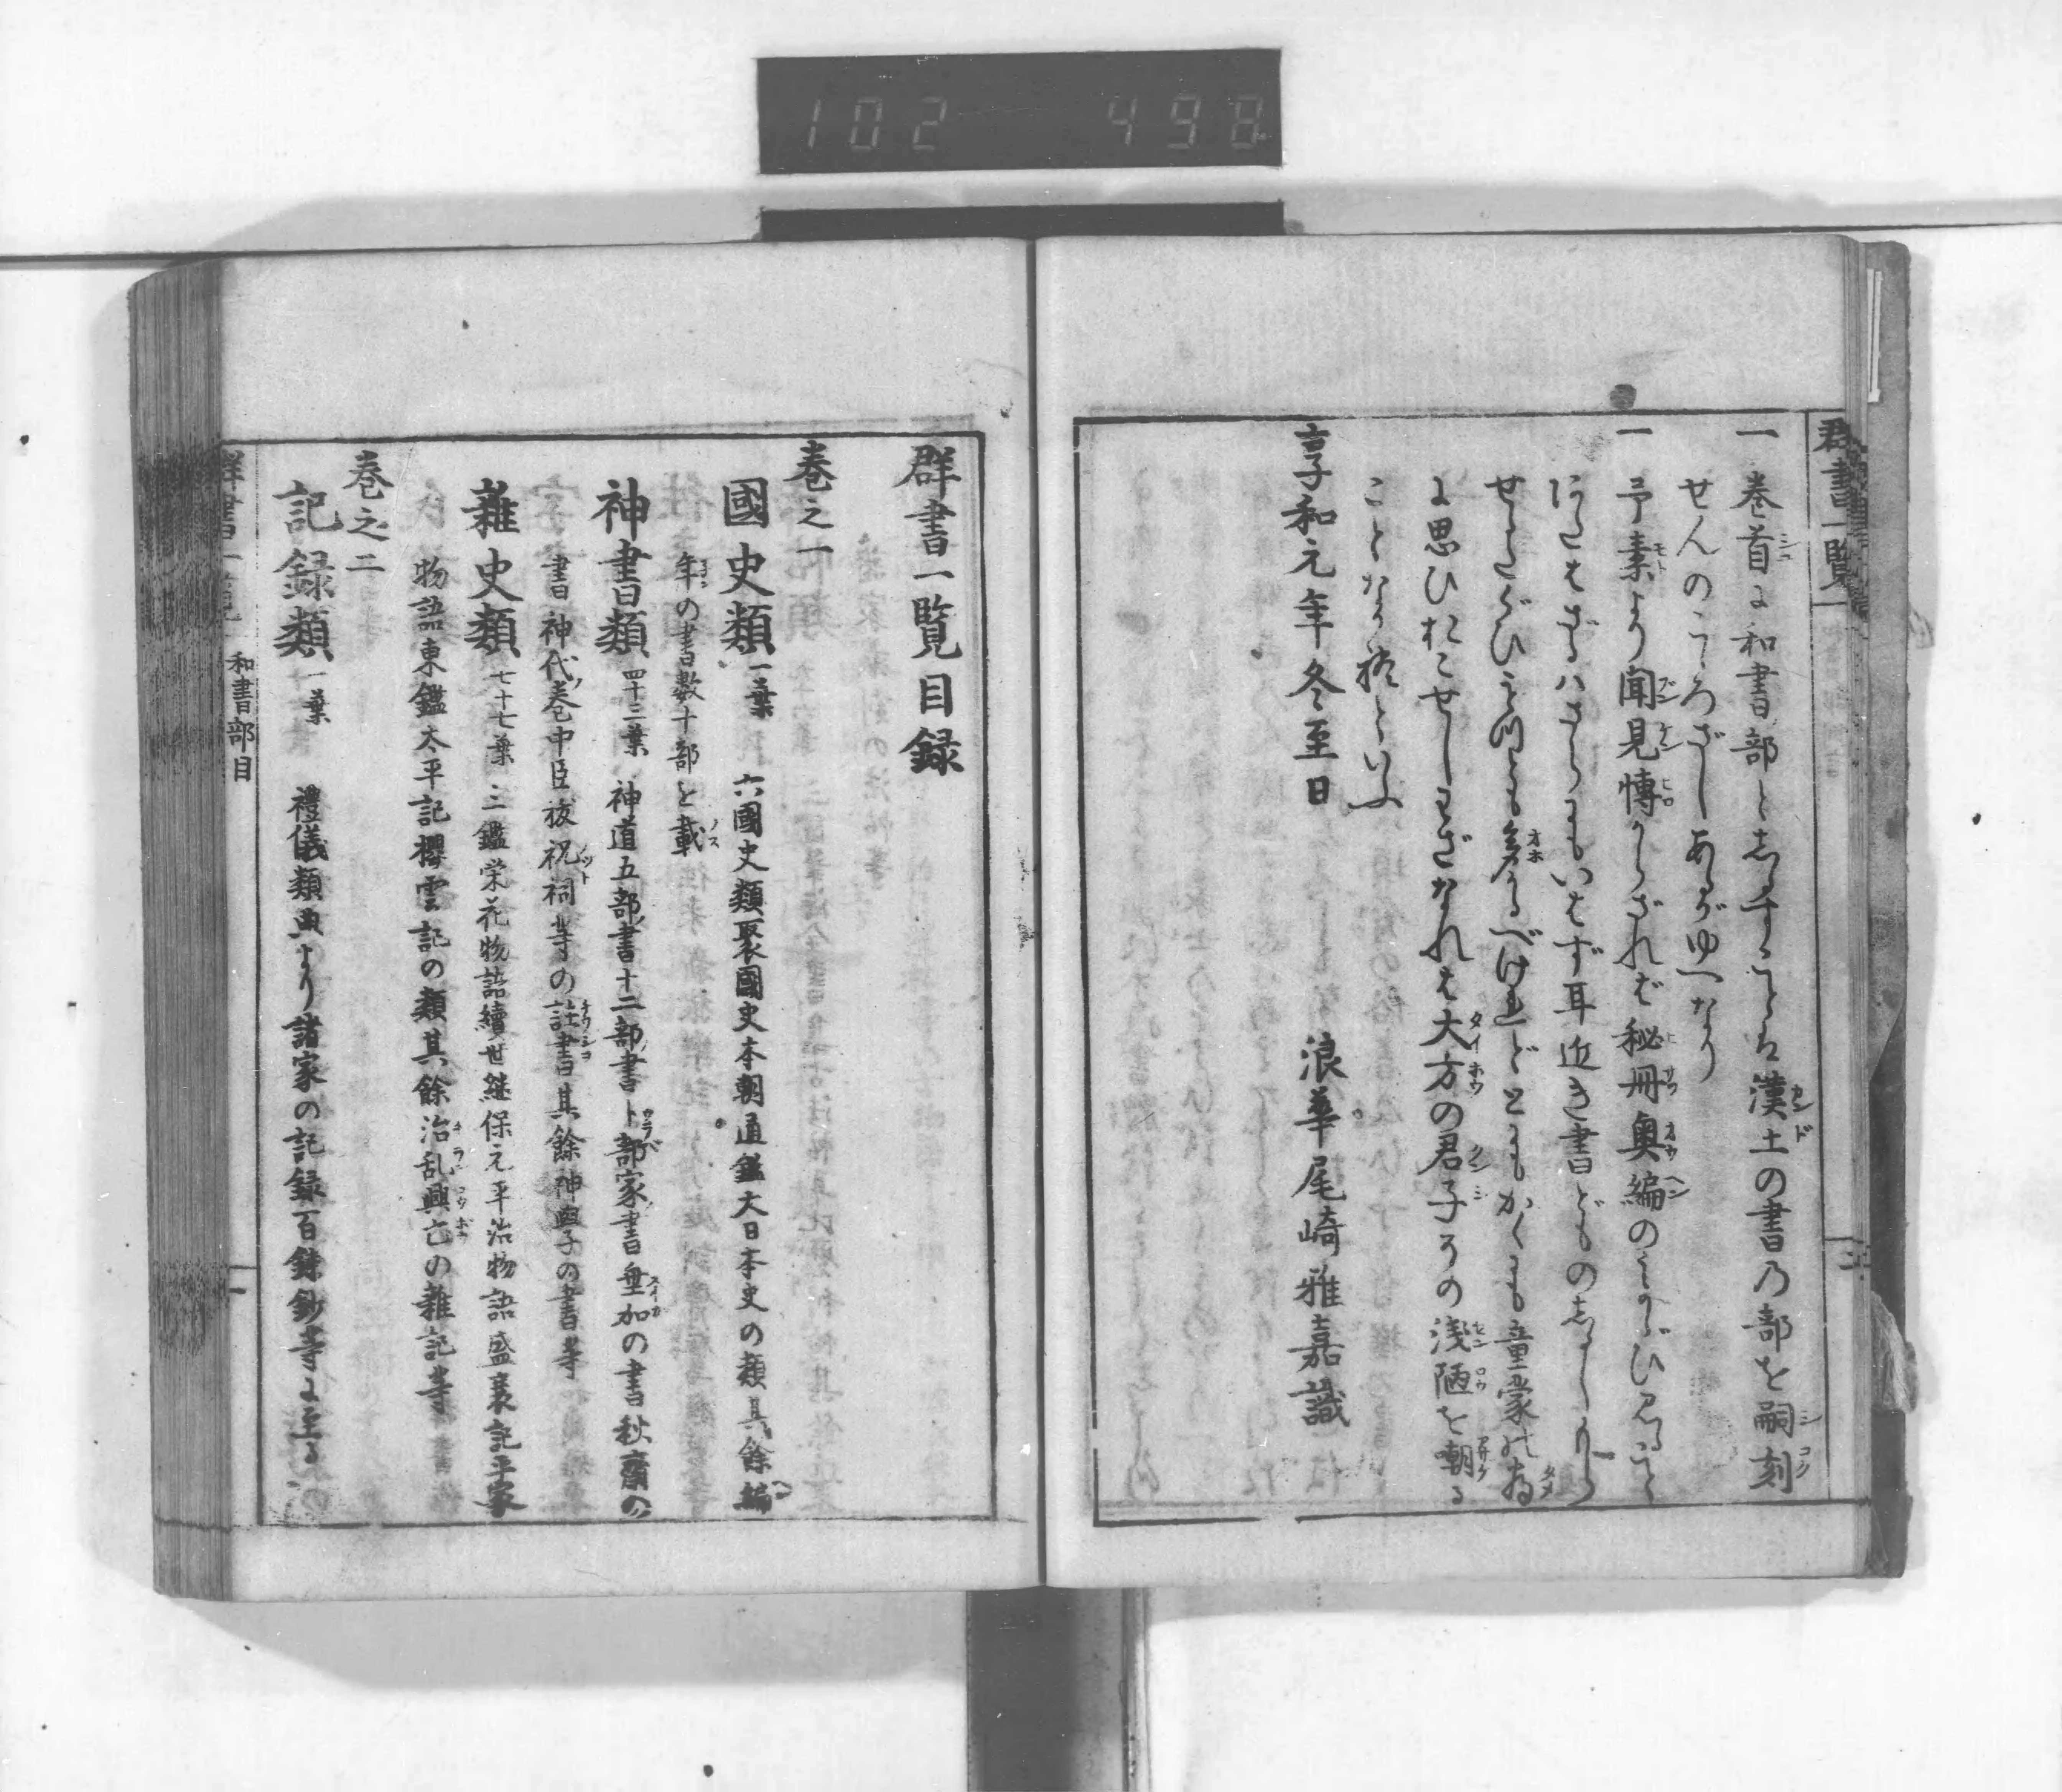 102 498
群書一覧
一 巻首に和書部としるすことは漢土の書乃部を嗣刻
せんのこゝろざしあるがゆへなり
一 予素より聞見博からざれば秘冊奥編の
いはず耳近き書どもの
多かるべけれどともかくも童蒙の為
に思ひおこせしわざなれは大方の君子その浅陋を嘲る
ことなかれといふ
享和元年冬至日
浪華 尾崎雅嘉識
群書一覧目録
巻之一
國史類 一葉 六國史類聚國史本朝通鑑大日本史の類其餘編
年の書数十部を載
神書類 四十三葉 神道五部書十二部書卜部家書垂加の書秋齋の
書神代巻中臣祓祝詞等の註書其餘神典子の書等
雜史類 七十七葉 三鑑栄花物語續世継保元平治物語盛衰記平家
物語東鑑太平記櫻雲記の類其餘治乱興亡の雜記等
巻之二
記録類 一葉 禮儀類典より諸家の記録百錬鈔等に至る
群書一覧 和書部目 一